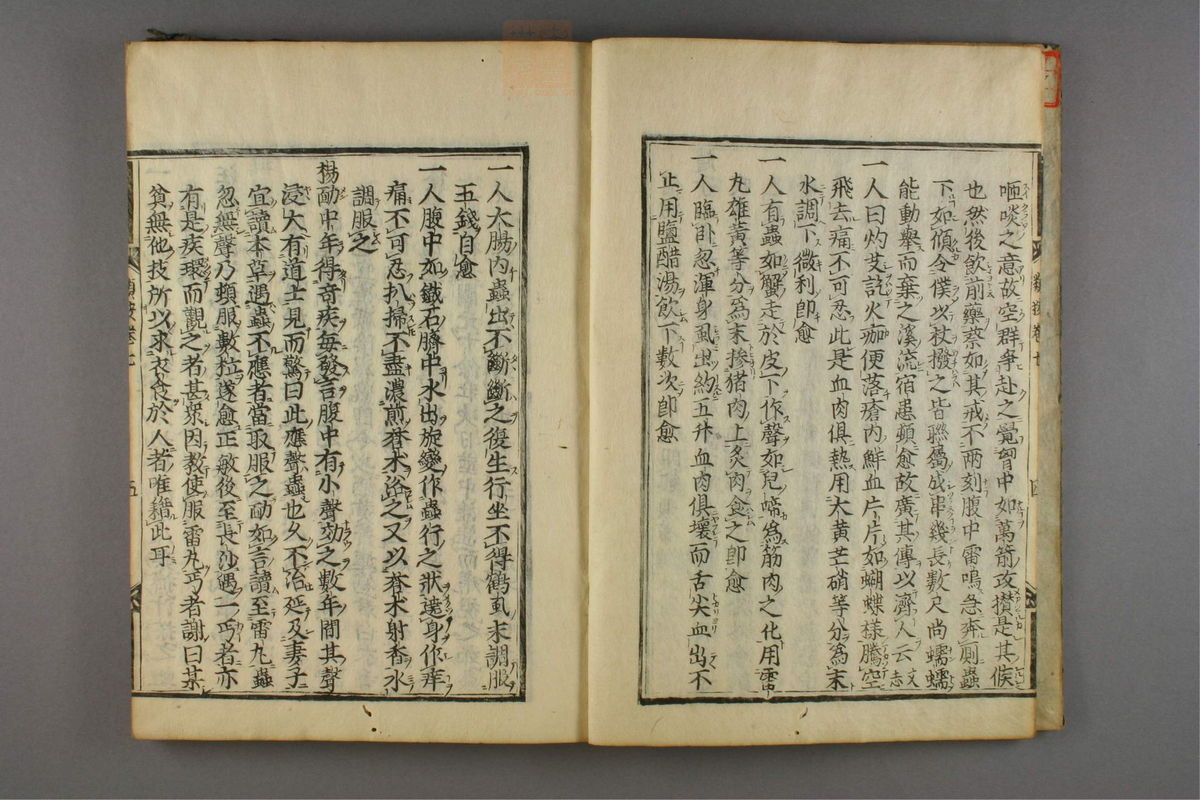 咂啖之意故空群爭赴之覺胷中如萬箭攻攢是其候
也然後飲前藥蔡如其戒不兩刻腹中雷鳴急奔厠蟲
下如傾令僕以杖撥之皆聯屬成串幾長數尺尚蠕蠕
能動擧而棄之溪流宿患頓愈故廣其傳以濟人云文志
一人曰灼艾訖火痂便落瘡内鮮血片片如蝴蝶樣騰空
飛去痛不可忍此是血肉俱熱用大黄芒硝等分爲末
水調下微利卽愈
一人有蟲如蟹走於皮下作聲如兒啼爲筋肉之化用雷
丸雄黄等分爲末摻猪肉上炙肉食之卽愈
一人臨臥忽渾身虱出約五升血肉俱壞而舌尖血出不
止用鹽醋湯飲下數次卽愈
一人大腸内蟲出不斷斷之復生行坐不得鶴虱末調服
五錢自愈
一人腹中如鐵石臍中水出旋變作蟲行之狀遶身作痒
痛不可忍扒掃不盡濃煎蒼木浴之又以蒼木射香水
調服之
楊勔中年得奇疾毎發言腹中有小聲効之數年間其聲
浸大有道士見而驚曰此應聲蟲也久不治延及妻子
宜讀本草遇蟲不應者當取服之勔如言讀至雷丸蟲
忽無聲乃頓服數粒遂愈正敏後至長沙遇一丐者亦
有是疾環而觀之者甚衆因教使服雷丸丐者謝曰某
貧無他技所以求衣食於人者唯籍此耳